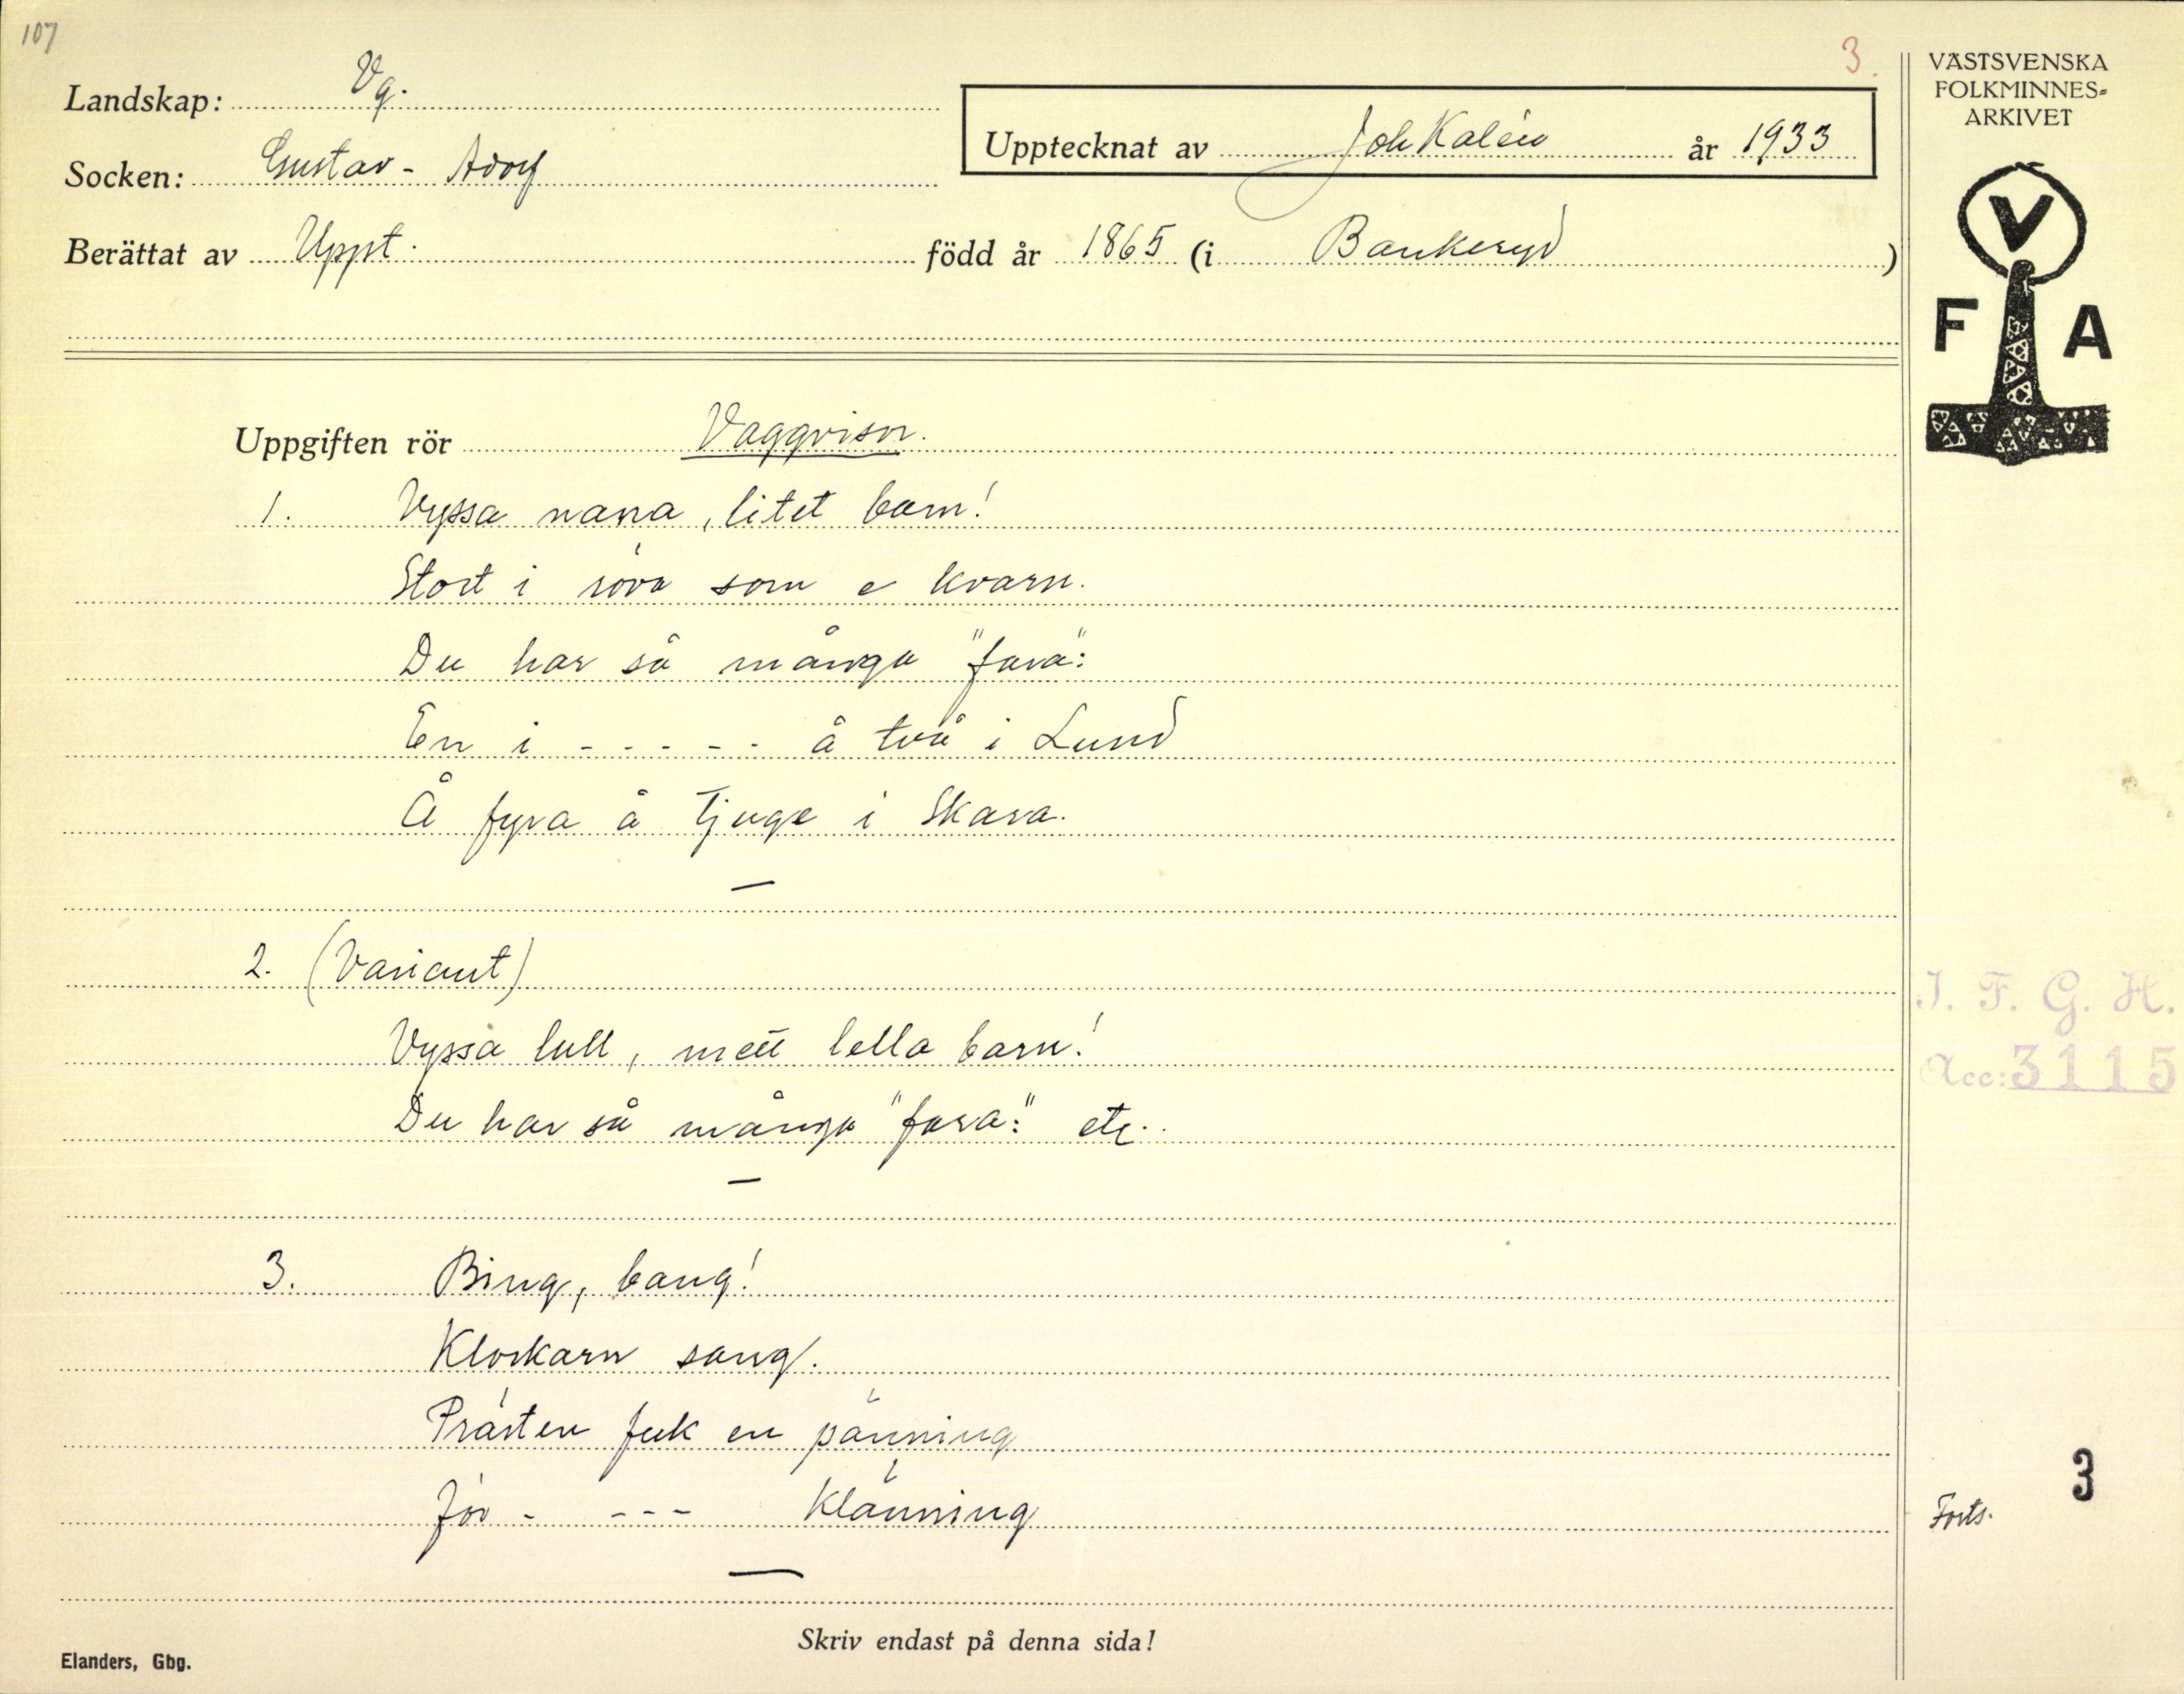 107
3.
Landskap: Vg.
Socken: Gustav-Adolf
Upptecknat av Joh Kalén år 1933
Berättat av Uppt. född år 1865 (i Bankeryd )
VÄSTSVENSKA
FOLKMINNES-
ARKIVET
V
F A
Uppgiften rör Vaggvisor.
1. Vyssa nana, litet barn!
Stort i röva som e kvarn.
Du har så många "fara":
En i - - - - - å två i Lund
Å fyra å tjuge i Skara.
—
2. (Variant)
Vyssa lull, mett lella barn!
Du har så många "fara:" etc.
—
3. Bing, bang!
Klockarn sang.
Prästen feck en pänning
För - - - - Klänning
—
J. F. G. H.
Acc: 3115
3
Forts.
Skriv endast på denna sida!
Elanders, Gbg.